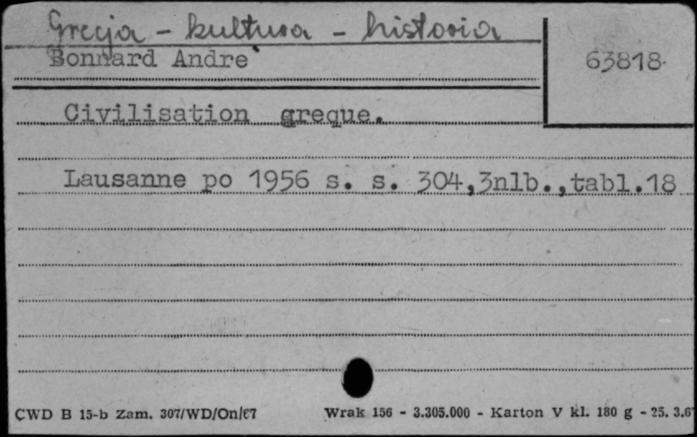 Grecja - kultura - historia
Bonnard Andre`
63818
Civilisation greque.
Lausanne po 1956 s. s. 304,3nlb.,tabl.18
CWD B 15-b Zam. 307/WD/On/67 Wrak 156 - 3.305.000 - Karton V kl. 180 g - 25. 3.67